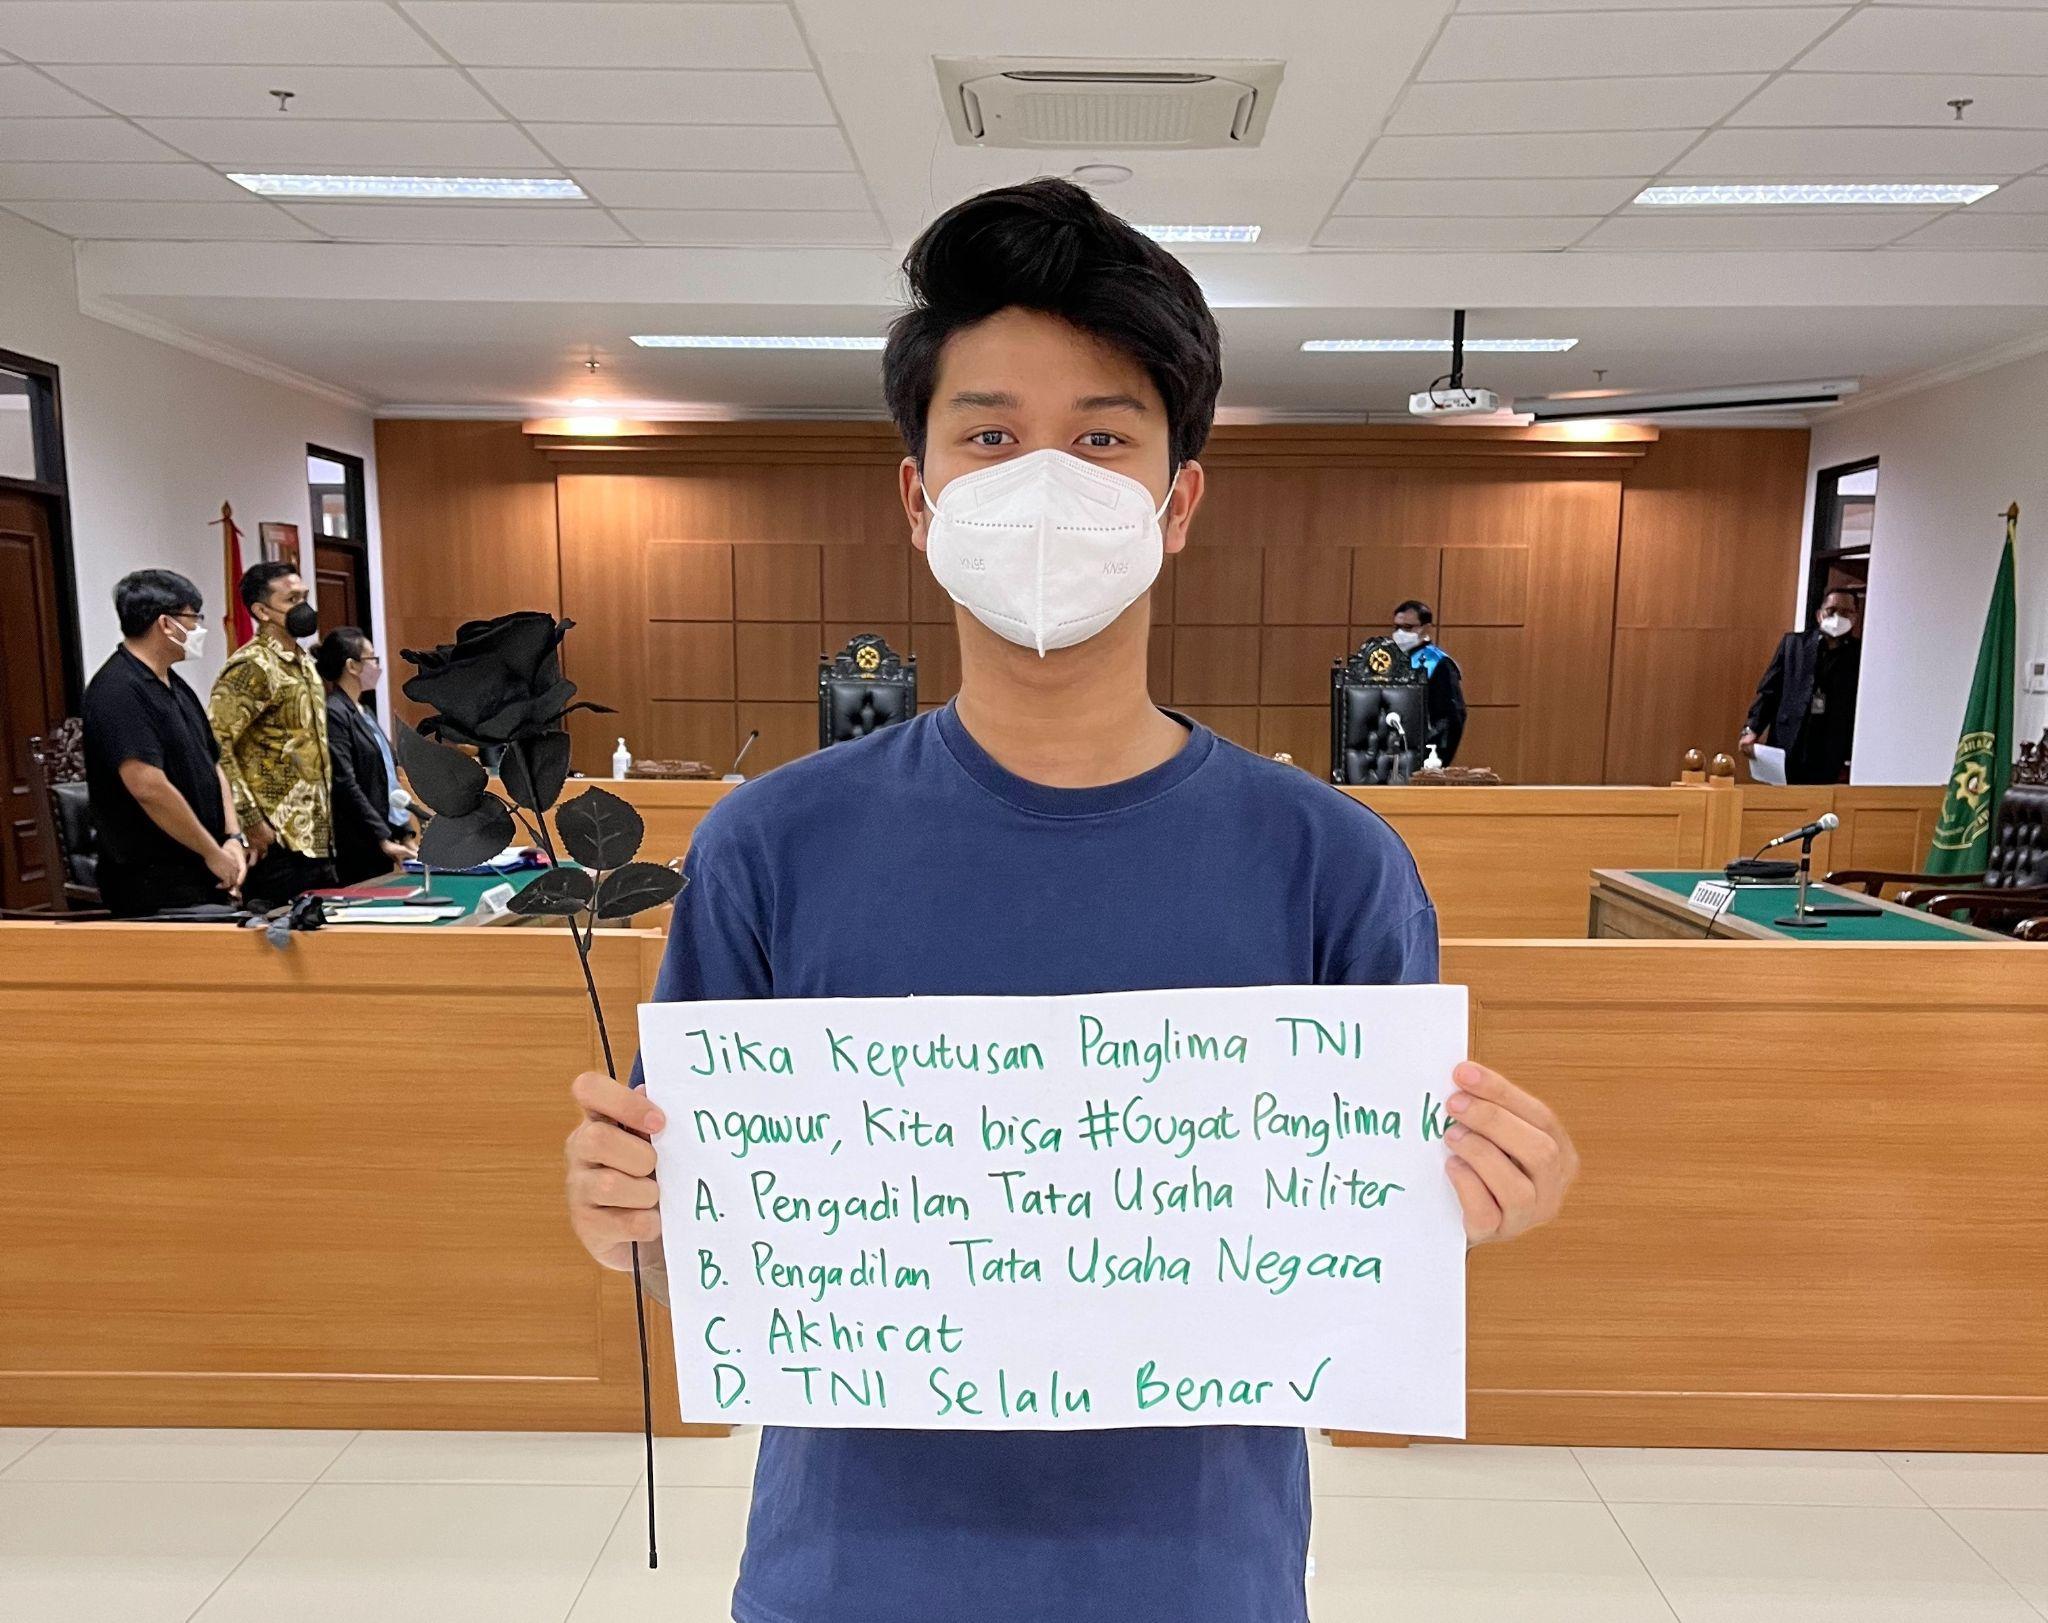 Jika Keputusan Panglima TNI
ngawur, Kita bisa #Gugat Panglima Ke
A. Pengadilan Tata Usaha Militer
B. Pengadilan Tata Usaha Negara
C. Akhirat
D. TNI Selalu Benar ✓
KN95
KN95
TERGUGAT